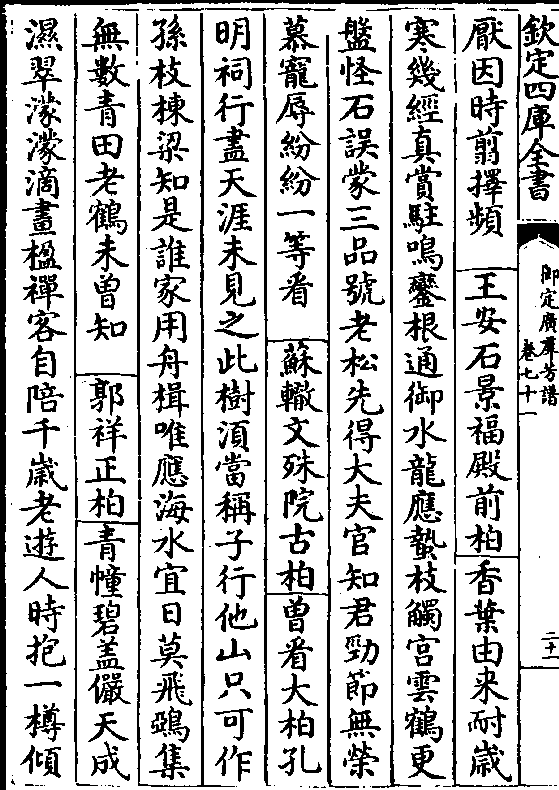 欽定四庫全書
御定廣羣芳譜
卷七十一
二十一
厭因時翦擇頻　王安石景福殿前柏香葉由来耐歲
寒幾經真賞駐鳴鑾根通御水龍應蟄枝觸宫雲鶴更
盤怪石誤蒙三品號老松先得大夫官知君勁節無榮
慕寵辱紛紛一等看　蘇轍文殊院古柏曽看大柏孔
明祠行盡天涯未見之此樹湏當稱子行他山只可作
孫枝棟梁知是誰家用舟楫唯應海水宜日莫飛鵶集
無數青田老鶴未曽知　郭祥正柏青幢碧盖儼天成
濕翠濛濛滴畫楹禪客自陪千歲老遊人時抱一樽傾